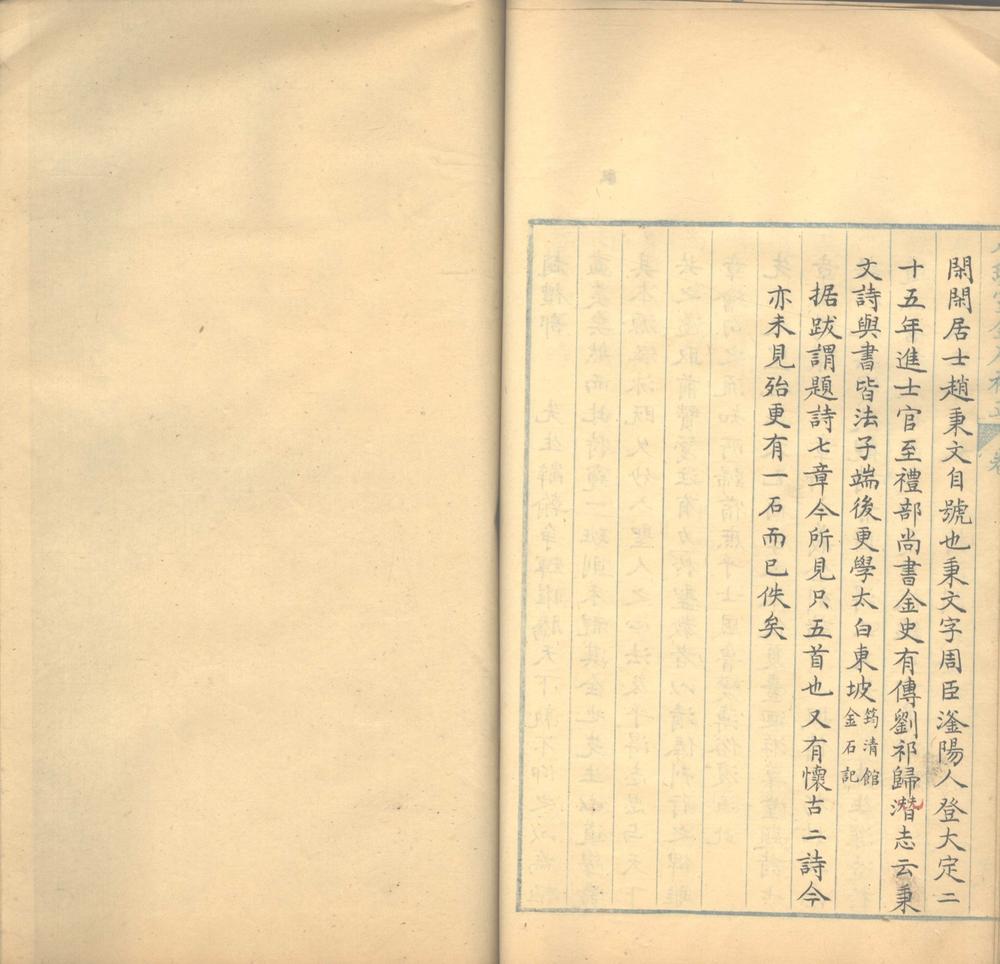 閑閑居士趙秉文自號也秉文字周臣滏陽人登大定二
十五年進士官至禮部尚書金史有傳劉祁歸潛志云秉
文詩與書皆法子端後更學太白東坡筠清館金石記
据跋謂題詩七章今所見只五首也又有懷古二詩今
亦未見殆更有一石而已佚矣